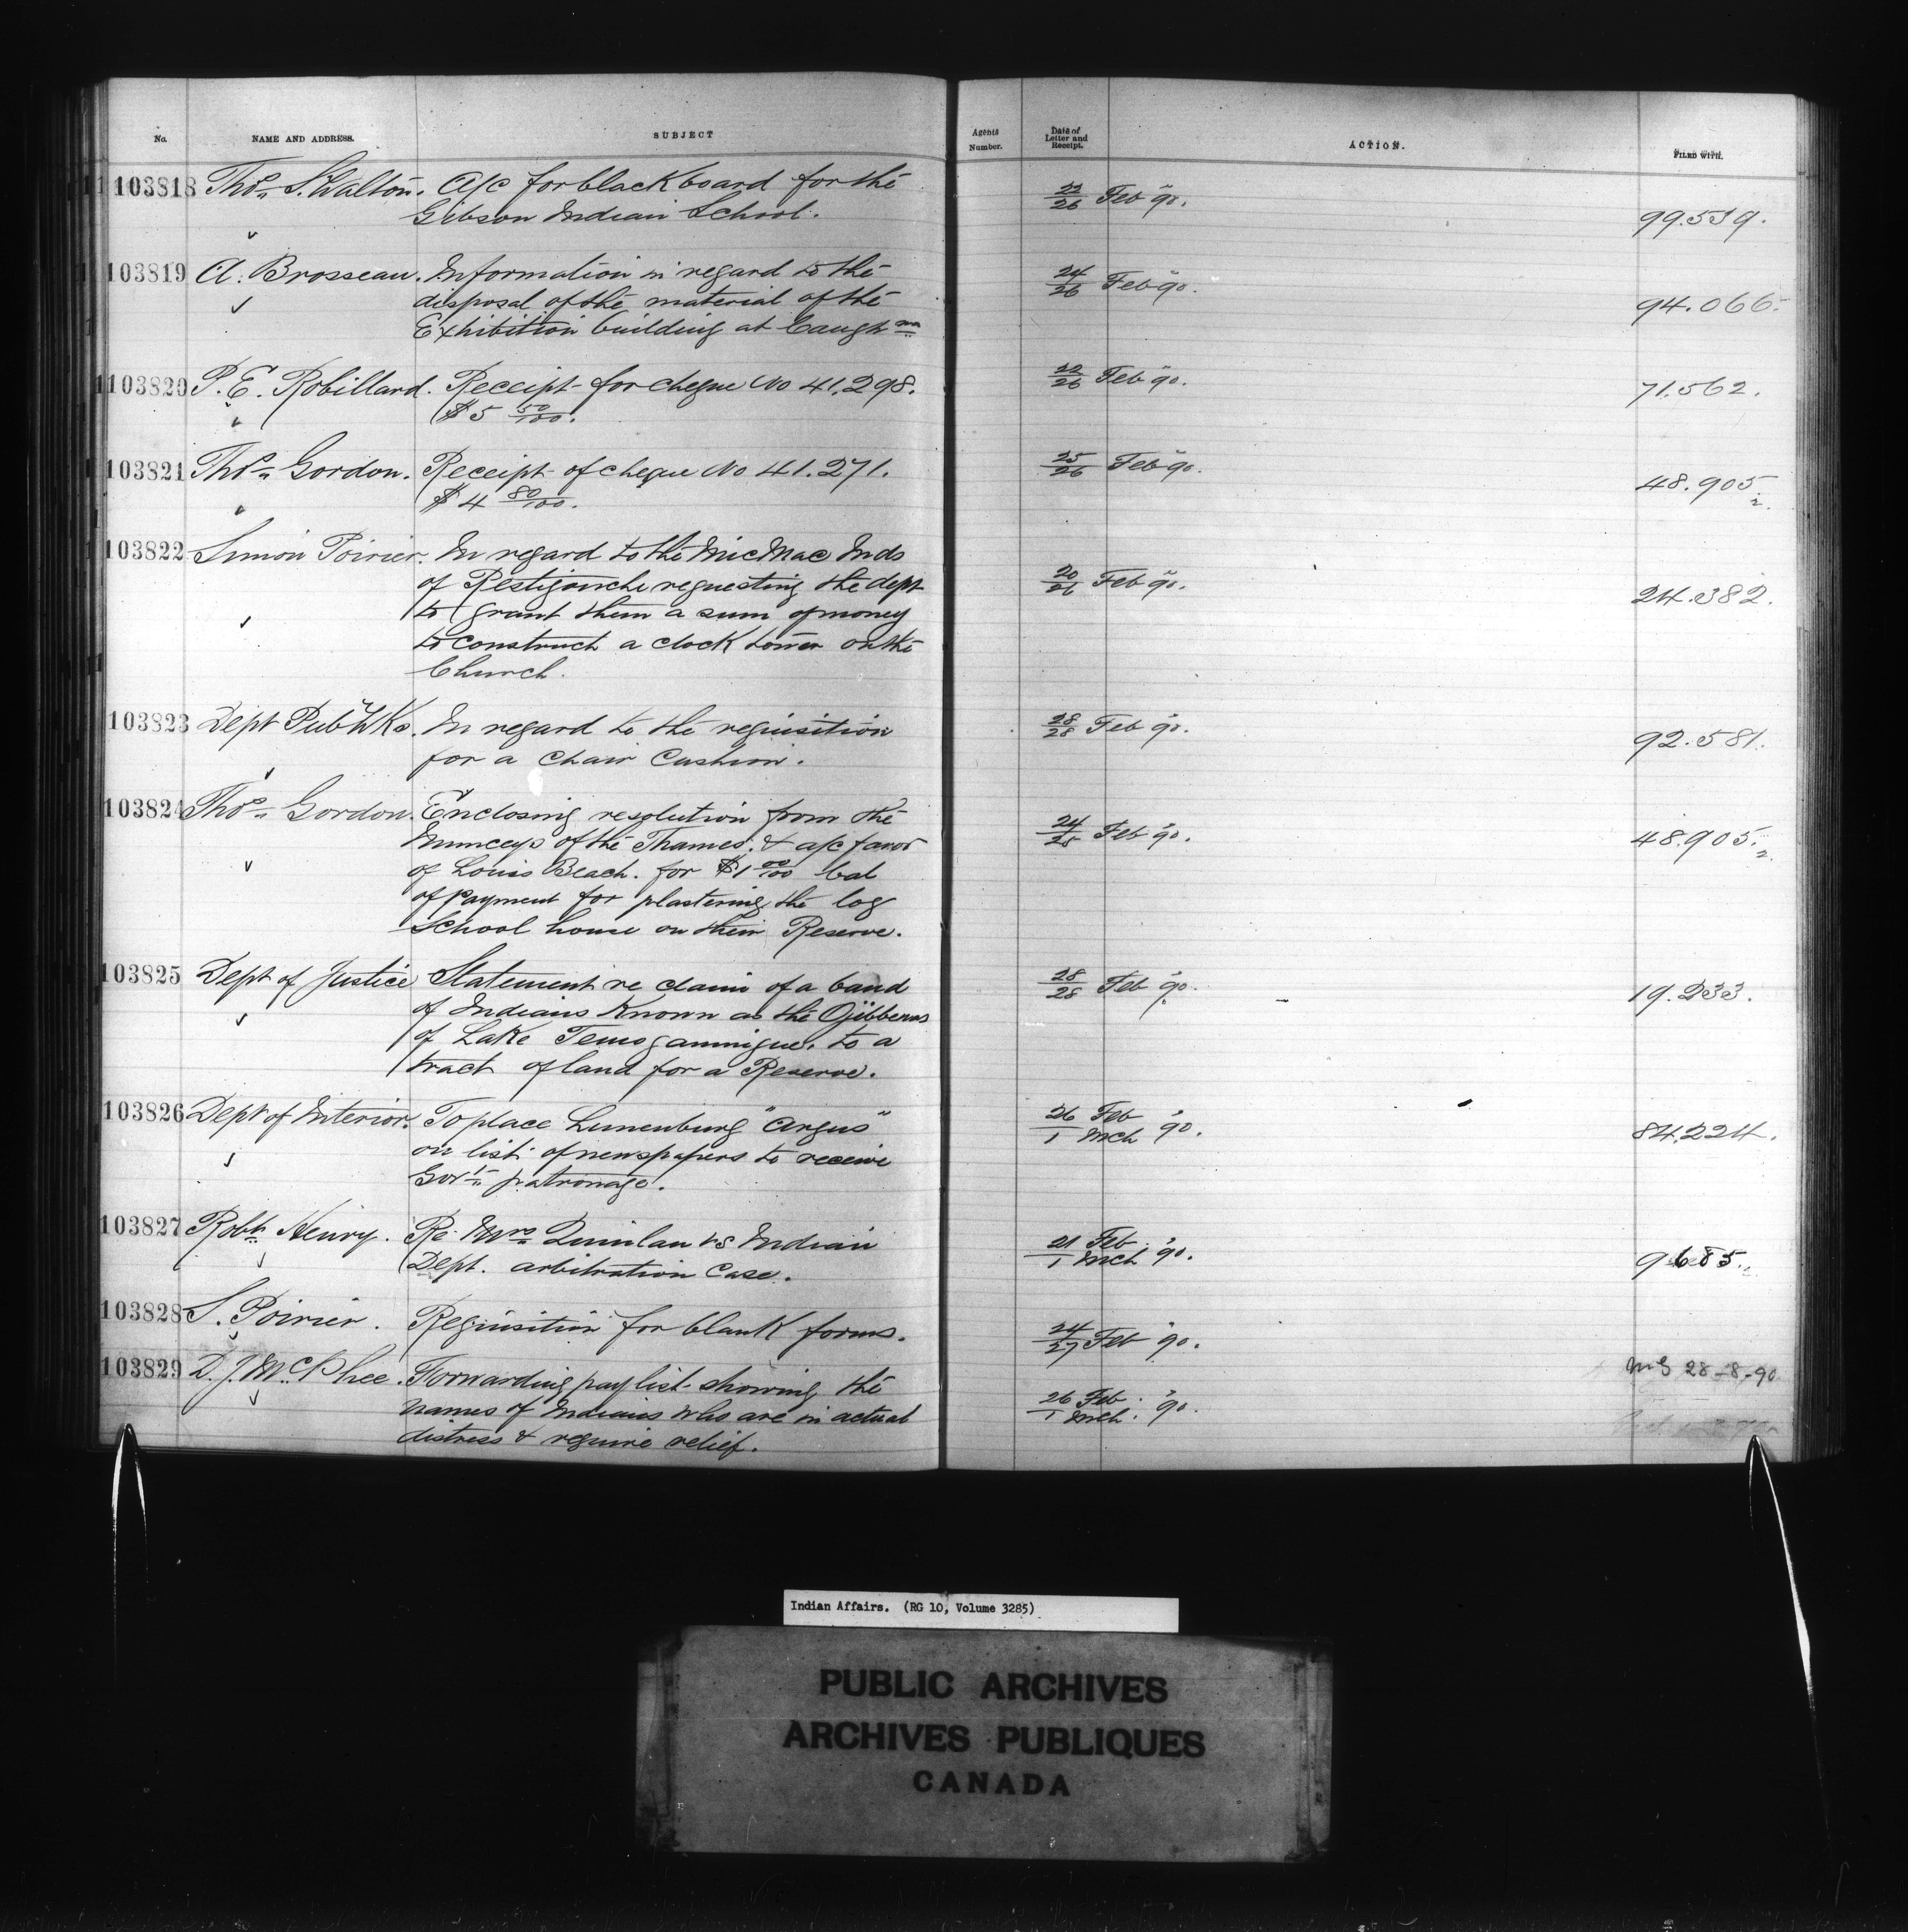 No. NAME AND ADDRESS. SUBJECT Agents Number. Date of Letter and Receipt. ACTION. FILED WITH.
103818 Thos. S. Walton. A/c for blackboard for the 22/26 Feb "90.
Gibson Indian School. 99.539.
103819 A. Brosseau. Information in regard to the 24/26 Feb "90.
disposal of the material of the 94.066.
Exhibition building at Caughna
103820 P. E. Robillard. Receipt for cheque No 41.298. 22/26 Feb "90. 71.562.
$5 50/100.
103821 Thos. Gordon. Receipt of cheque No 41.271. 25/26 Feb "90. 48.905 2.
$4 80/100.
103822 Simon Poirier. In regard to the MicMac Inds
of Restigouche requesting the dept 20/26 Feb "90. 24.382.
to grant them a sum of money
to construct a clock tower on the
Church.
103823 Dept Pub. Wks. In regard to the requisition 28/28 Feb "90. 92.581.
for a Chair Cushion.
103824 Thos. Gordon. Enclosing resolution from the
Munceys of the Thames. & a/c favor 24/28 Feb "90. 48.905. 2.
of Louis Beach. for $1 00/100 bal
of payment for plastering the log
School house on their Reserve.
103825 Dept of Justice Statement re claim of a band 28/28 Feb "90. 19.233.
of Indians known as the Ojibbewas
of Lake Temogammigue. to a
tract of land for a Reserve.
103826 Dept of Interior. To place Lunenburg "Argus" 26 Feb / 1 Mch "90. 84.224.
on list of newspapers to receive
Govt. patronage.
103827 Robt. Henry. Re Mrs. Quinlan vs Indian 21 Feb / 1 Mch "90. 9685.
Dept. arbitration Case.
103828 S. Poirier. Requisition for blank forms. 24/27 Feb "90.
103829 D. J. McPhee. Forwarding pay list showing the 26 Feb / 1 Mch. "90. 28-8-90
names of Indians who are in actual
distress & require relief.
Indian Affairs. (RG 10, Volume 3285)
PUBLIC ARCHIVES
ARCHIVES PUBLIQUES
CANADA